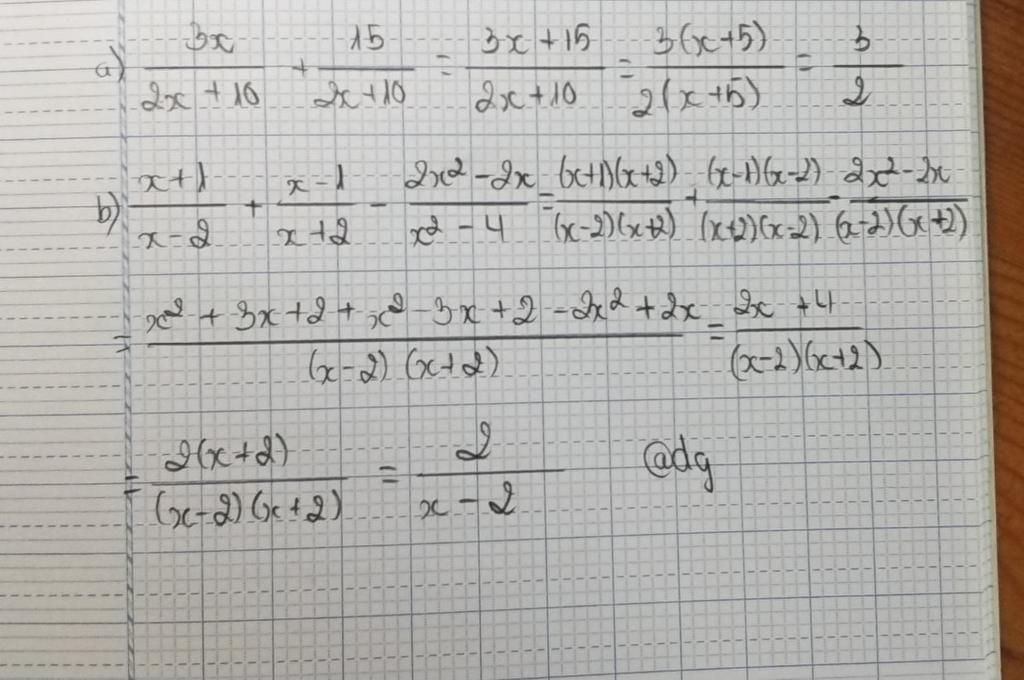 a) \frac{3x}{2x+10} + \frac{15}{2x+10} = \frac{3x+15}{2x+10} = \frac{3(x+5)}{2(x+5)} = \frac{3}{2}
b) \frac{x+1}{x-2} + \frac{x-1}{x+2} - \frac{2x^2-2x}{x^2-4} = \frac{(x+1)(x+2)}{(x-2)(x+2)} + \frac{(x-1)(x-2)}{(x+2)(x-2)} - \frac{2x^2-2x}{(x-2)(x+2)}
= \frac{x^2+3x+2+x^2-3x+2-2x^2+2x}{(x-2)(x+2)} = \frac{2x+4}{(x-2)(x+2)}
= \frac{2(x+2)}{(x-2)(x+2)} = \frac{2}{x-2} @dg